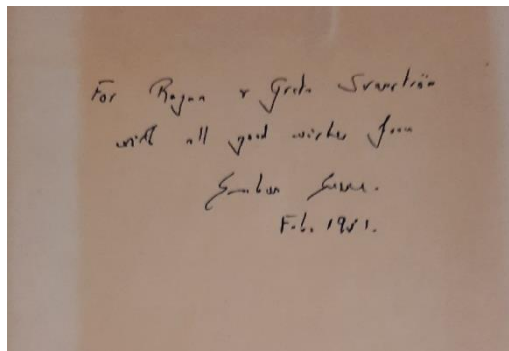 For Ragnar & Greta Svanström
with all good wishes from
Feb. 1951.